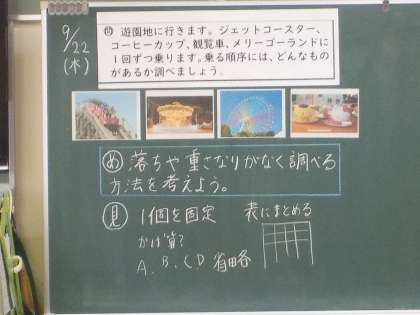 9/22
(木)
問 遊園地に行きます。ジェットコースター、
コーヒーカップ、観覧車、メリーゴーランドに
1回ずつ乗ります。乗る順序には、どんなもの
があるか調べましょう。
め 落ちや重さなりがなく調べる
方法を考えよう。
見 1個を固定 表にまとめる
かけ算?
A、B、C D 省略